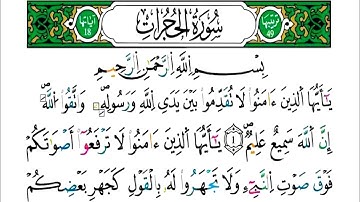 ترتيبها 49 سُورَةُ الحُجُرَاتِ آياتها 18
بِسْمِ اللَّهِ الرَّحْمَٰنِ الرَّحِيمِ
يَٰٓأَيُّهَا الَّذِينَ ءَامَنُوا۟ لَا تُقَدِّمُوا۟ بَيْنَ يَدَىِ اللَّهِ وَرَسُولِهِۦ ۖ وَاتَّقُوا۟ اللَّهَ ۚ
إِنَّ اللَّهَ سَمِيعٌ عَلِيمٌ ١ يَٰٓأَيُّهَا الَّذِينَ ءَامَنُوا۟ لَا تَرْفَعُوٓا۟ أَصْوَٰتَكُمْ
فَوْقَ صَوْتِ النَّبِىِّ وَلَا تَجْهَرُوا۟ لَهُۥ بِالْقَوْلِ كَجَهْرِ بَعْضِكُمْ